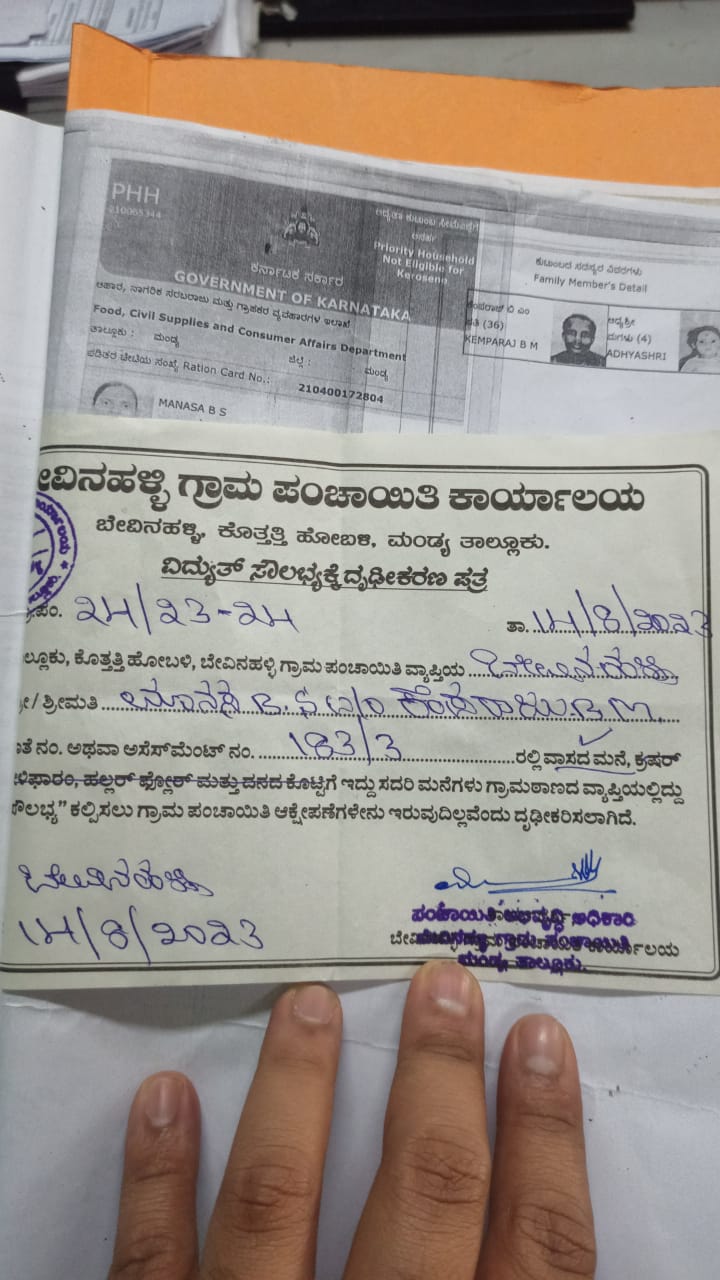 PHH
ಆದ್ಯತಾ ಕುಟುಂಬ
Priority Household
Not Eligible for
Kerosene
ಕರ್ನಾಟಕ ಸರ್ಕಾರ
GOVERNMENT OF KARNATAKA
ಆಹಾರ, ನಾಗರಿಕ ಸರಬರಾಜು ಮತ್ತು ಗ್ರಾಹಕರ ವ್ಯವಹಾರಗಳ ಇಲಾಖೆ
Food, Civil Supplies and Consumer Affairs Department
ತಾಲ್ಲೂಕು : ಮಂಡ್ಯ ಜಿಲ್ಲೆ : ಮಂಡ್ಯ
ಪಡಿತರ ಚೀಟಿಯ ಸಂಖ್ಯೆ Ration Card No.: 210400172804
MANASA B S
ಕುಟುಂಬದ ಸದಸ್ಯರ ವಿವರಗಳು
Family Member's Detail
ಕೆಂಪರಾಜ್ ಬಿ ಎಂ
ಪತಿ (36)
KEMPARAJ B M
ಆದ್ಯಶ್ರೀ
ಮಗಳು (4)
ADHYASHRI
ಬೇವಿನಹಳ್ಳಿ ಗ್ರಾಮ ಪಂಚಾಯಿತಿ ಕಾರ್ಯಾಲಯ
ಬೇವಿನಹಳ್ಳಿ, ಕೊತ್ತತ್ತಿ ಹೋಬಳಿ, ಮಂಡ್ಯ ತಾಲ್ಲೂಕು.
ವಿದ್ಯುತ್ ಸೌಲಭ್ಯಕ್ಕೆ ದೃಢೀಕರಣ ಪತ್ರ
24/23-24 ತಾ. 14/8/2023
ಲ್ಲೂಕು, ಕೊತ್ತತ್ತಿ ಹೋಬಳಿ, ಬೇವಿನಹಳ್ಳಿ ಗ್ರಾಮ ಪಂಚಾಯಿತಿ ವ್ಯಾಪ್ತಿಯ ಬೇವಿನಹಳ್ಳಿ
/ ಶ್ರೀಮತಿ ಮಾನಸ B.S W/O ಕೆಂಪರಾಜು B.M.
ತೆ ನಂ. ಅಥವಾ ಅಸೆಸ್‌ಮೆಂಟ್ ನಂ. 183/3 ರಲ್ಲಿ ವಾಸದ ಮನೆ, ಕ್ರಷರ್
ಫಾರಂ, ಹಲ್ಲರ್ ಫ್ಲೋರ್ ಮತ್ತು ದನದ ಕೊಟ್ಟಿಗೆ ಇದ್ದು ಸದರಿ ಮನೆಗಳು ಗ್ರಾಮಠಾಣದ ವ್ಯಾಪ್ತಿಯಲ್ಲಿದ್ದು
ಸೌಲಭ್ಯ" ಕಲ್ಪಿಸಲು ಗ್ರಾಮ ಪಂಚಾಯಿತಿ ಆಕ್ಷೇಪಣೆಗಳೇನು ಇರುವುದಿಲ್ಲವೆಂದು ದೃಢೀಕರಿಸಲಾಗಿದೆ.
ಬೇವಿನಹಳ್ಳಿ
14/8/2023
ಪಂಚಾಯಿತಿ ಅಭಿವೃದ್ಧಿ ಅಧಿಕಾರಿ
ಮಂಡ್ಯ ತಾಲ್ಲೂಕು.